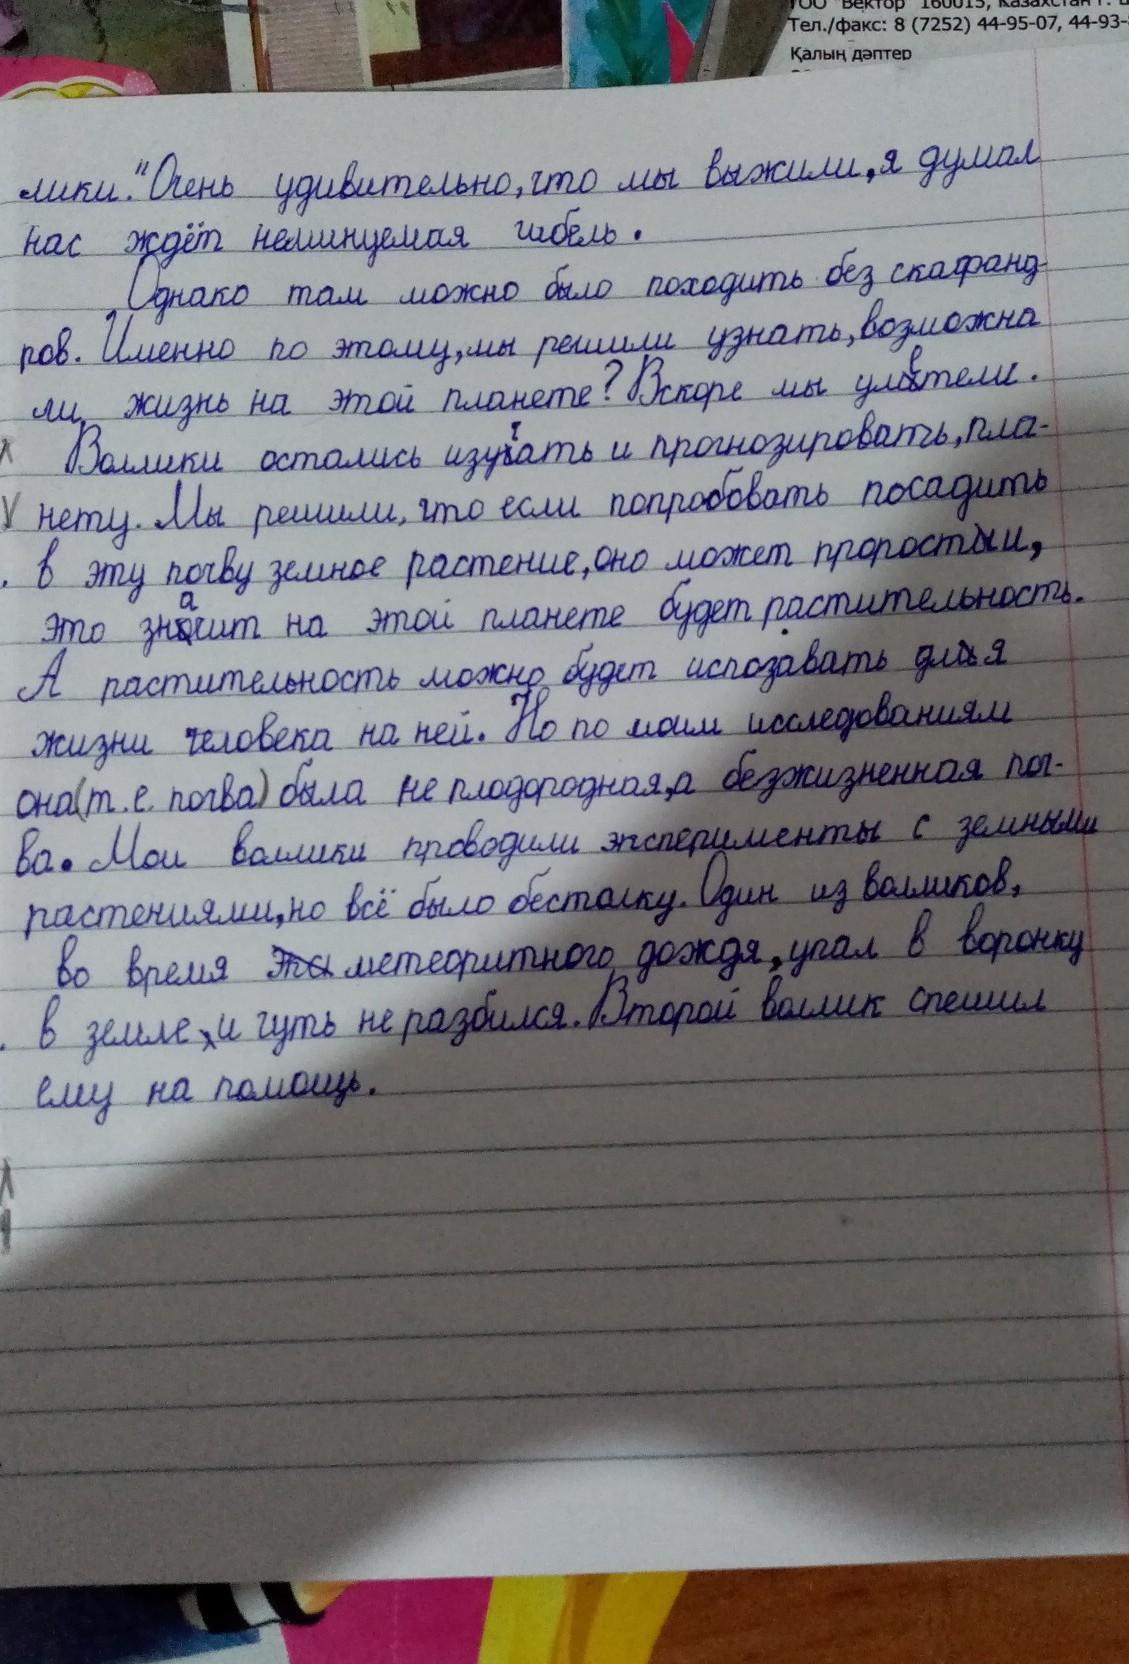 ТОО "Вектор" 160015, Казахстан г.
Тел./факс: 8 (7252) 44-95-07, 44-93-
Қалың дәптер
лики." Очень удивительно, что мы выжили, я думал
нас ждёт неминуемая гибель.
Однако там можно было походить без скафанд-
ров. Именно по этому, мы решили узнать, возможна
ли жизнь на этой планете? Вскоре мы улетели.
Валлики остались изучать и прогнозировать, пла-
нету. Мы решили, что если попробовать посадить
в эту почву земное растение, оно может проросты,
это значит на этой планете будет растительность.
А растительность можно будет испозавать для
жизни человека на ней. Но по моим исследованиям
она (т.е. почва) была не плодородная, а безжизненная поч-
ва. Мои валлики проводили эксперименты с земными
растениями, но всё было бесталку. Один из валликов,
во время метеоритного дождя, упал в воронку
в земле, и чуть не разбился. Второй валлик спешил
ему на помощь.